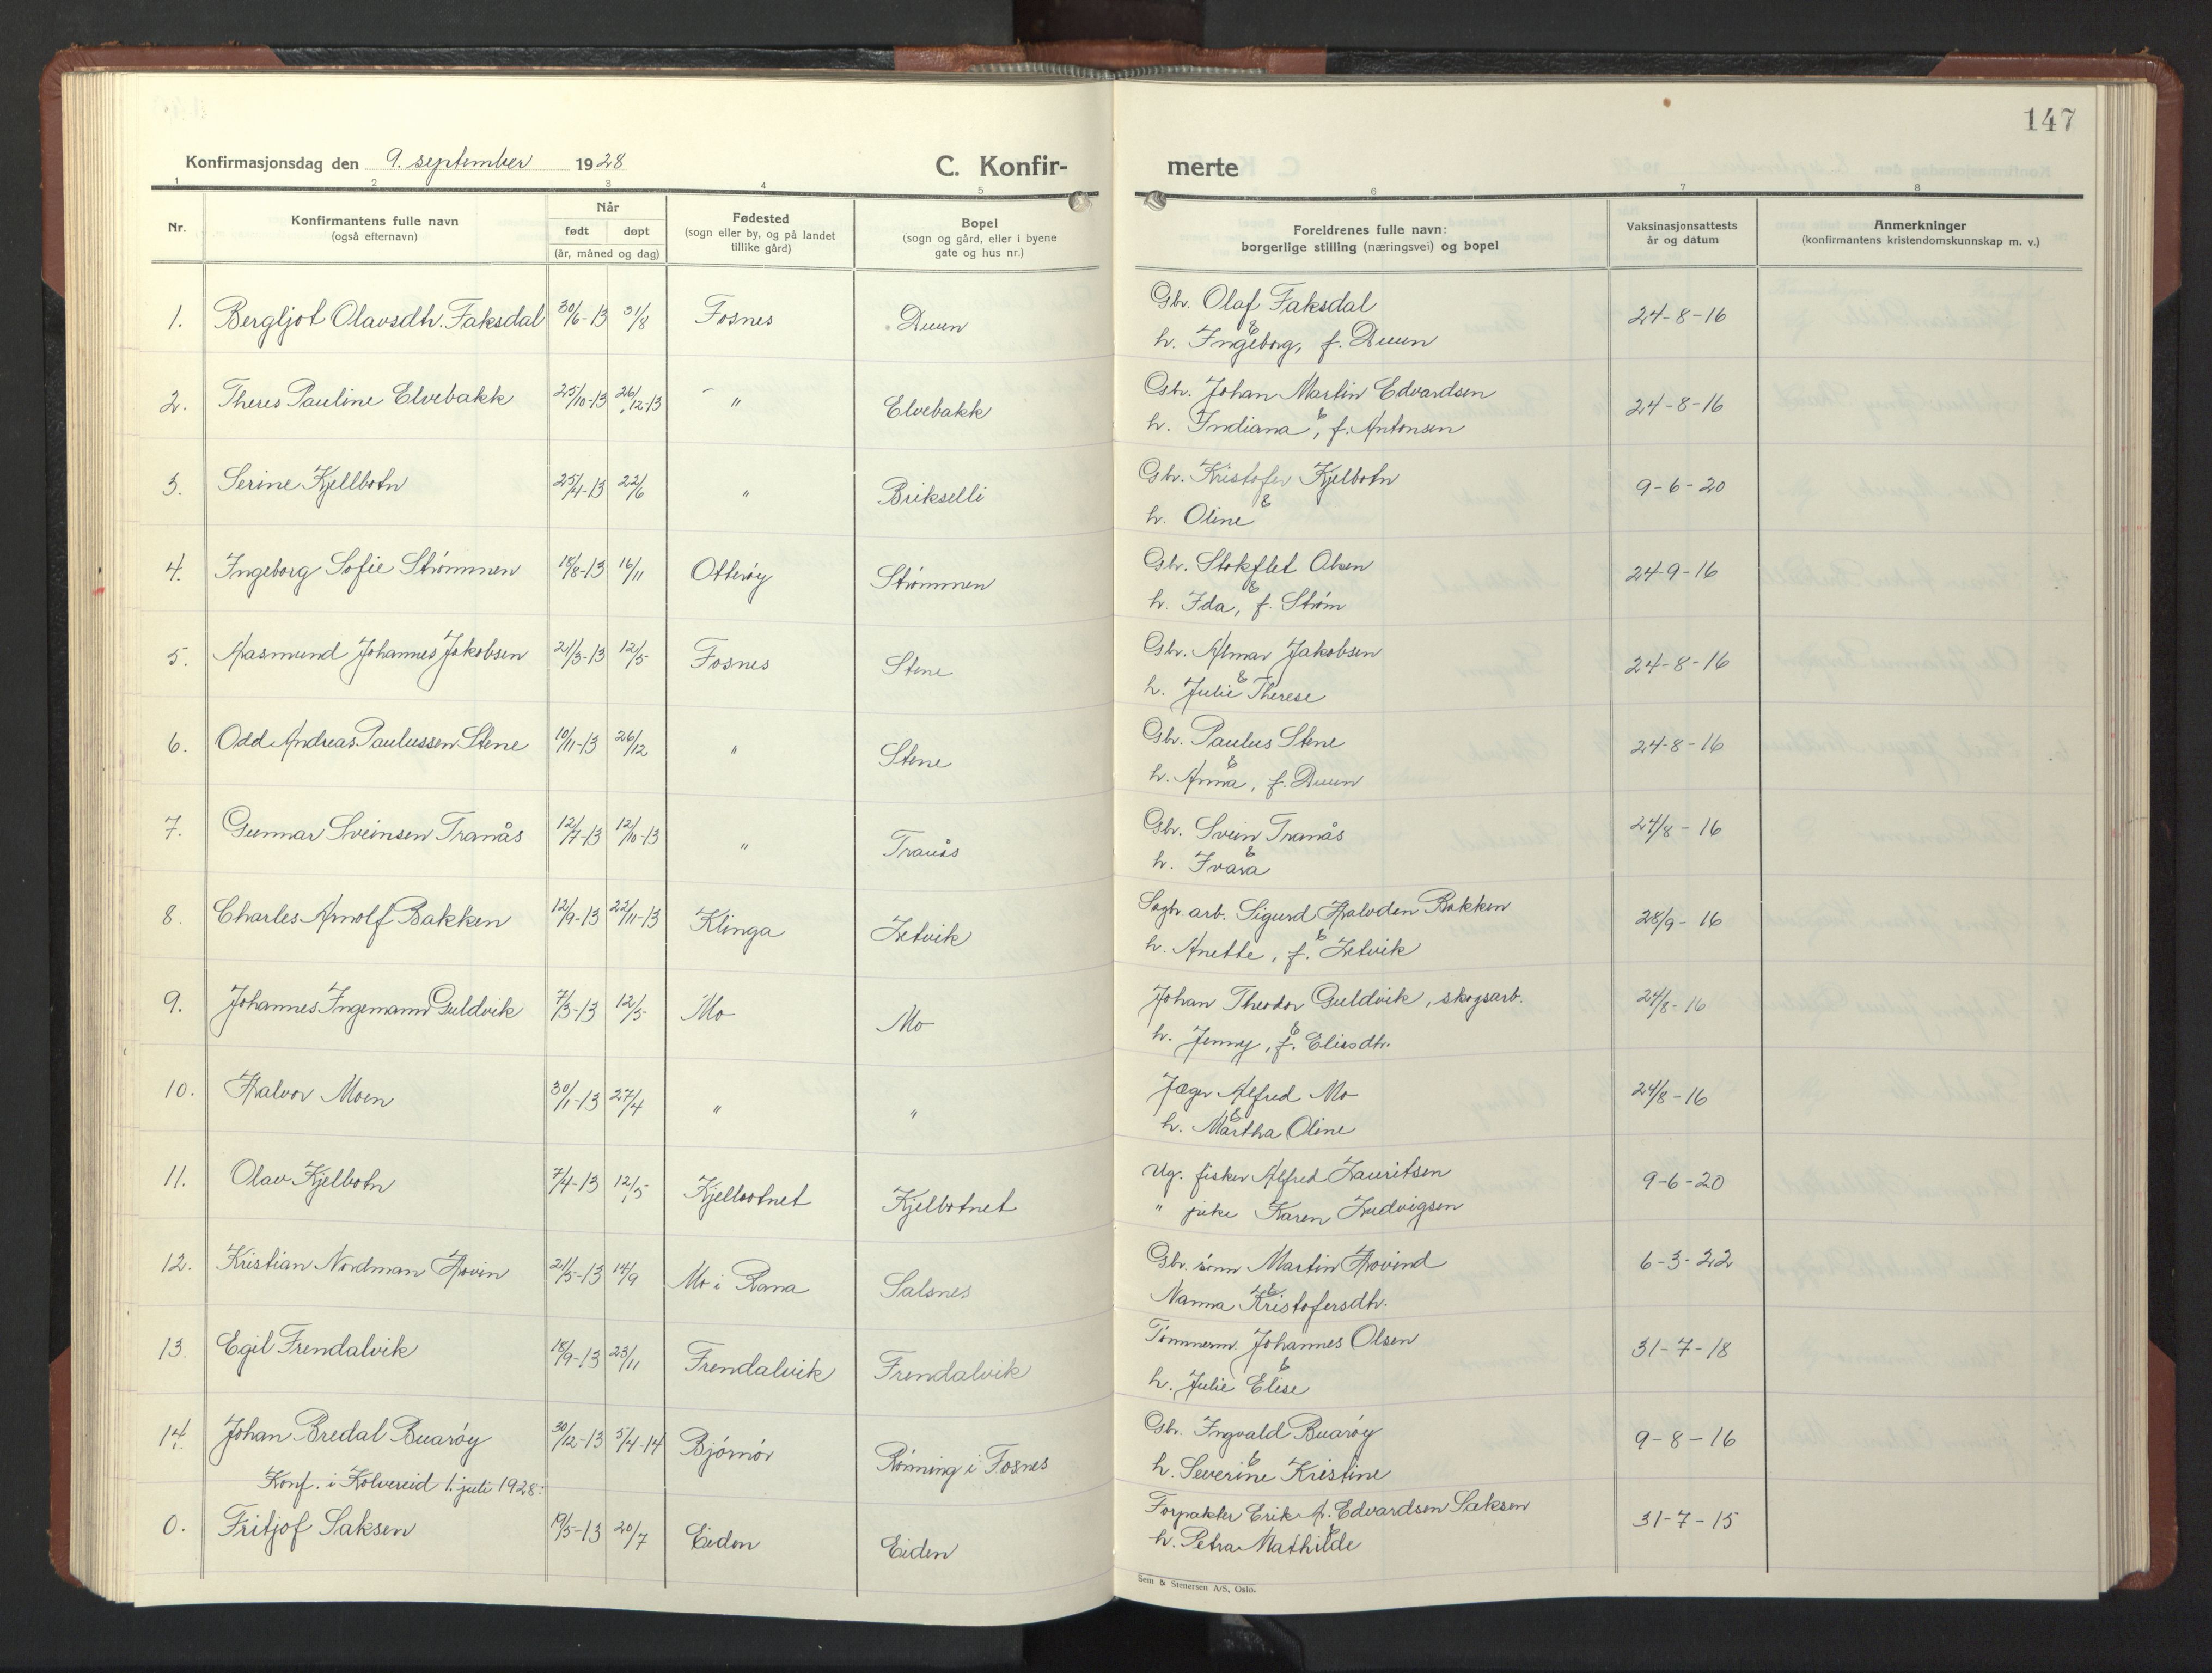 147
Konfirmasjonsdag den 9. september 1928 C. Konfir- merte
1 2 3 4 5 6 7 8
Nr. Konfirmantens fulle navn (også efternavn) Når født døpt (år, måned og dag) Fødested (sogn eller by, og på landet tillike gård) Bopel (sogn og gård, eller i byene gate og hus nr.) Foreldrenes fulle navn: borgerlige stilling (næringsvei) og bopel Vaksinasjonsattests år og datum Anmerkninger (konfirmantens kristendomskunnskap m. v.)
1. Bergljot Olavsdtr. Faksdal 30/6-13 31/8 Fosnes Duun Gbr. Olaf Faksdal 24-8-16
& h. Ingeborg, f. Duun
2. Theres Pauline Elvebakk 25/10-13 26/12-13 " Elvebakk Gbr. Johan Martin Edvardsen 24-8-16
& h. Indiana, f. Antonsen
3. Serine Kjellbotn 25/4-13 22/6 " Brikselli Gbr. Kristofer Kjelbotn 9-6-20
& h. Oline
4. Ingeborg Sofie Strømmen 18/8-13 16/11 Otterøy Strømmen Gbr. Stokflet Olsen 24-9-16
& h. Ida, f. Strøm
5. Aasmund Johannes Jakobsen 21/3-13 12/5 Fosnes Stene Gbr. Almar Jakobsen 24-8-16
& h. Julie Therese
6. Odd Andreas Paulussen Stene 10/11-13 26/12 " Stene Gbr. Paulus Stene 24-8-16
& h. Anna, f. Duun
7. Gunnar Sveinsen Tranås 12/7-13 12/10-13 " Tranås Gbr. Svein Tranås 24/8-16
& h. Ivara
8. Charles Arnolf Bakken 12/9-13 22/11-13 Klinga Letvik Sagbr. arb. Sigurd Halvden Bakken 28/9-16
& h. Anette, f. Letvik
9. Johannes Ingemann Guldvik 7/3-13 12/5 Mo Mo Johan Theodor Guldvik, skogsarb. 24/8-16
& h. Jenny, f. Eliesdtr.
10. Halvor Moen 30/1-13 27/4 " " Jæger Alfred Mo 24/8-16
& h. Martha Oline
11. Olav Kjelbotn 7/4-13 12/5 Kjelbotnet Kjelbotnet Ug. fisker Alfred Lauritsen 9-6-20
" pike Karen Ludvigsen
12. Kristian Nordman Hovin 21/5-13 14/9 Mo i Rana Salsnes Gbr. sønn Martin Hovind 6-3-22
& Nanna Kristofersdtr.
13. Egil Frendalvik 18/9-13 23/11 Frendalvik Frendalvik Tømmerm. Johannes Olsen 31-7-18
& h. Julie Elise
14. Johan Bredal Buarøy 30/12-13 5/4-14 Bjørnør Rønning i Fosnes Gbr. Ingvald Buarøy 9-8-16
& h. Severine Kristine
Konf. i Kolvereid 1. juli 1928:
0. Fritjof Saksen 19/5-13 20/7 Eiden Eiden Forpakter Erik A. Edvardsen Saksen 31-7-15
& h. Petra Mathilde
Sem & Stenersen A/S, Oslo.